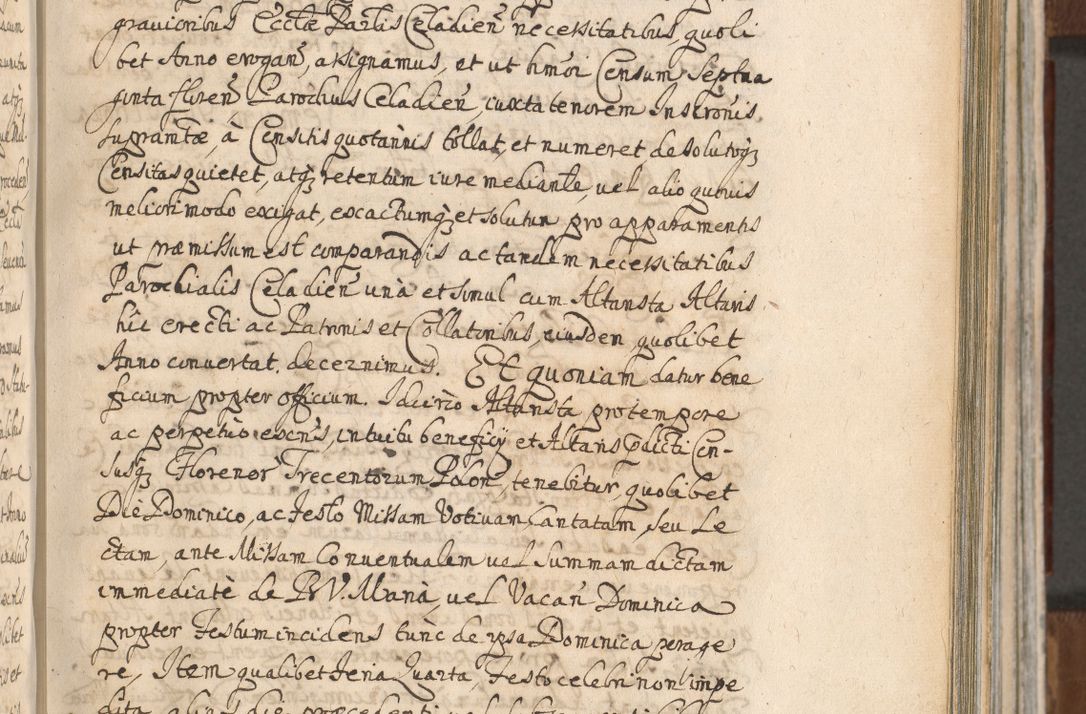 grauioribus Ecctæ Partis Celadień necessitatibus, quoli
bet Anno erogań, assignamus, et ut hmõi Censum Septua
ginta floreń Parochus Celadień, iuxta tenorem Instrõnis
supramtæ, à Censitis quotannis tollat, et numeret de solutoqz
Censitas quietet, atqz retentum iure mediante, uel alio quouis
meliori modo exigat, exactumqz et solutum pro apparamentis
ut præmissum est comparandis ac tandem necessitatibus
Parochialis Celadień unà et simul cum Altarista Altaris
hic erecti ac Patronis et Collatoribus, eiusdem quolibet
Anno conuertat, decernimus. Et quoniam datur bene
ficium propter officium. Idcirco Altarista pro tempore
ac perpetuo exens, intuitu beneficij et Altaris pdicti Cen-
susqz Florenor Trecentorum Polon, tenebitur, quolibet
Die Dominico, ac festo Missam Votiuam Cantatam, seu Le
ctam, ante Missam Conuentualem uel Summam dictam
immediatè de B. V. Maria, uel Vacań Dominica
propter Festum incidens tunc de ipsa Dominica perage
re, Item qualibet feria Quarta, Festo celebri non impe
dita, alias die præcedenti uel